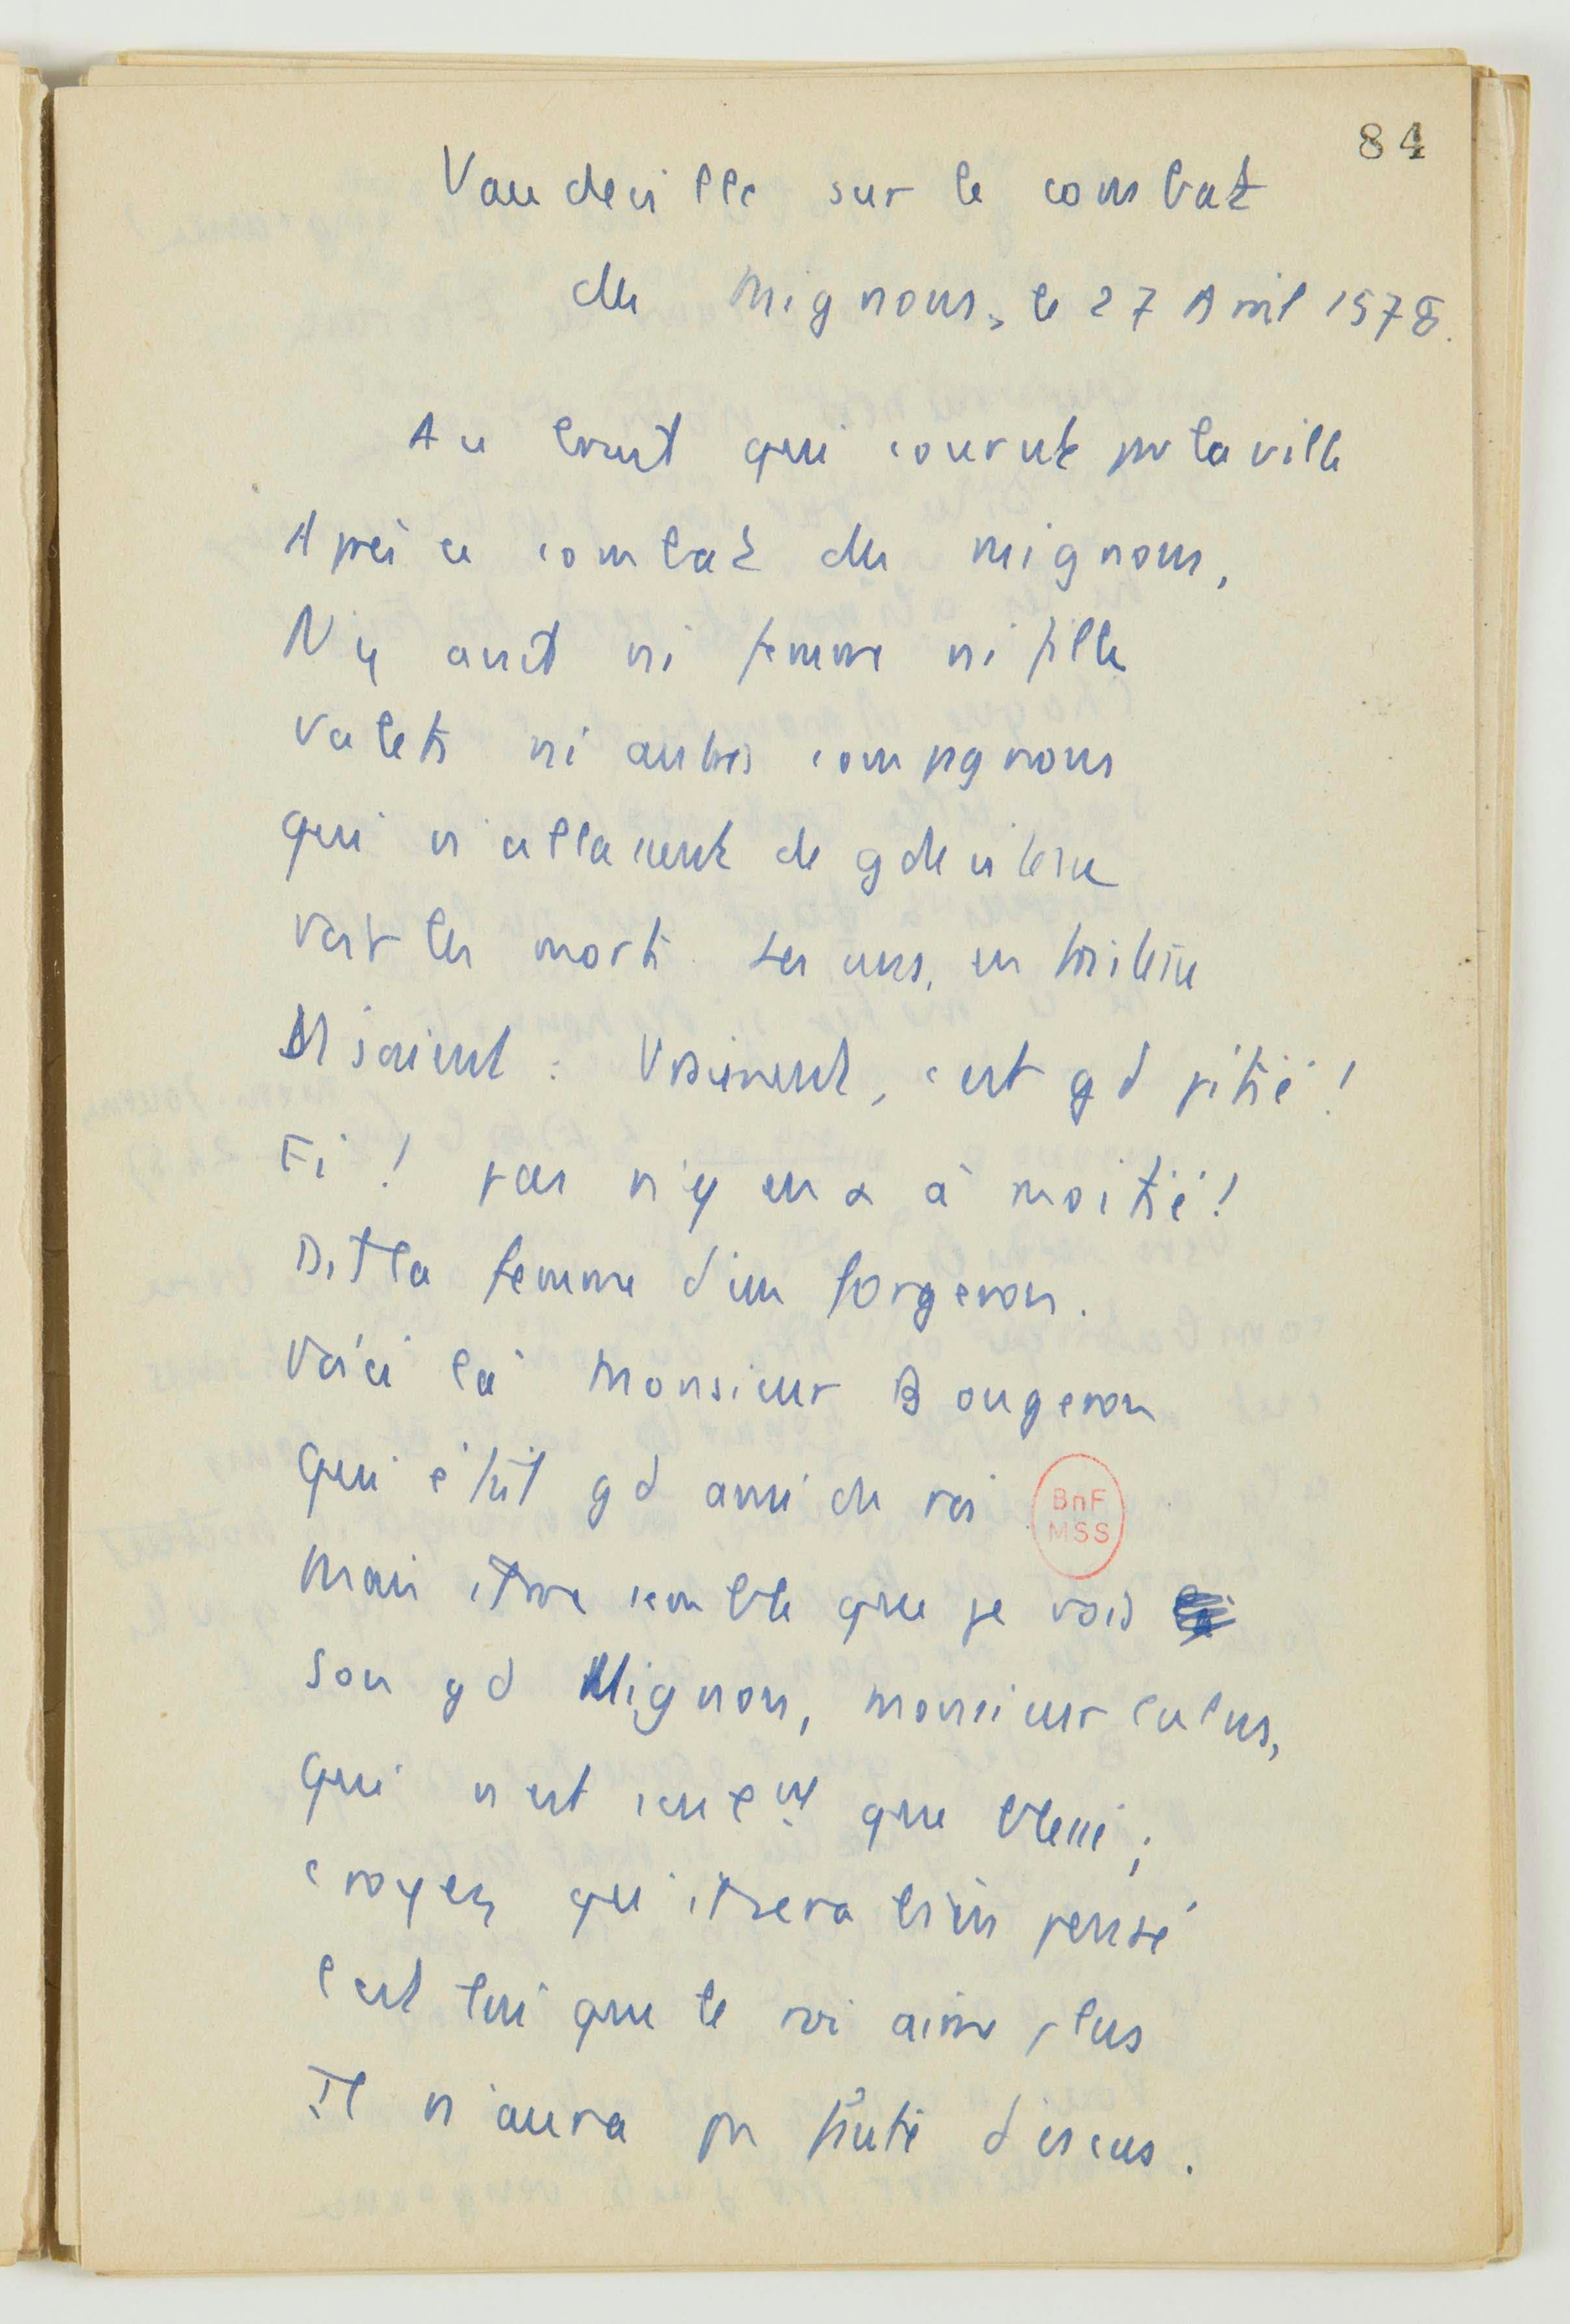 84
Vaudeville sur le combat
des Mignons, le 27 Avril 1578.
Au bruit qui courut par la ville
Après ce combat des mignons,
N'y avait ni femme ni fille
Valets ni autres compagnons
qui n'allaient de gde vitesse
Voir les morts. Les uns, en tristesse
Disaient : Vraiment, c'est gd pitié !
Fi ! pas n'y en a à moitié !
Dit la femme d'un forgeron.
Voici là Monsieur Bougeron
Qui était gd ami du roi
Mais il me semble que je vois
Son gd Mignon, monsieur Calus,
Qui n'est seulemt que blessé ;
Croyez qu'il sera bien pensé
C'est lui que le roi aime plus
Il n'aura pas faute d'écus.
BnF
MSS